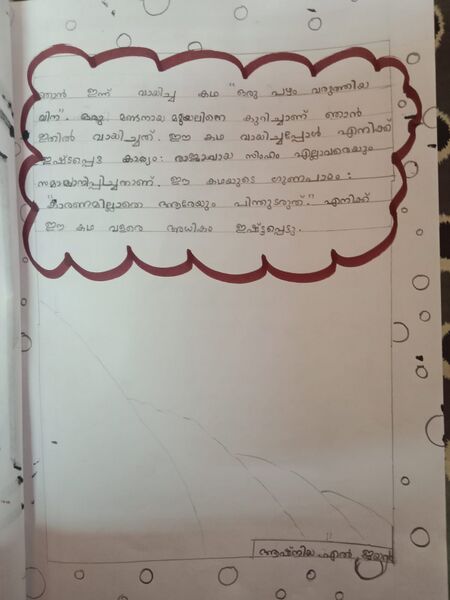 ഞാൻ ഇന്ന് വായിച്ച കഥ "ഒരു പഴം വരുത്തിയ
വിന". ഒരു മണ്ടനായ മുയലിനെ കുറിച്ചാണ് ഞാൻ
ഇതിൽ വായിച്ചത്. ഈ കഥ വായിച്ചപ്പോൾ എനിക്ക്
ഇഷ്ടപ്പെട്ട കാര്യം: രാജാവായ സിംഹം എല്ലാവരെയും
സമാധാനിപ്പിച്ചതാണ്. ഈ കഥയുടെ ഗുണപാഠം:
"കാരണമില്ലാതെ ആരേയും പിന്തുടരുത്." എനിക്ക്
ഈ കഥ വളരെ അധികം ഇഷ്ട്ടപ്പെട്ടു.
എൽ